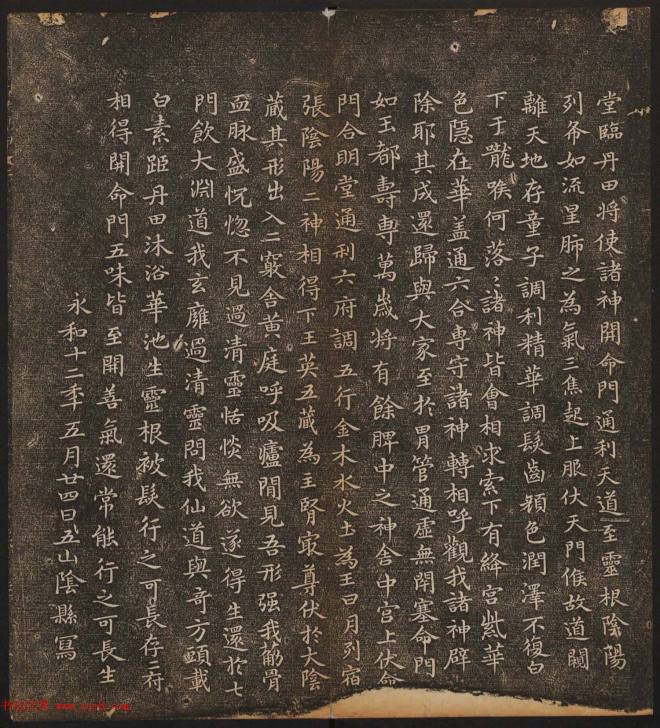 堂臨丹田将使諸神開命門通利天道至靈根陰陽
列布如流星肺之為氣三焦起上服伏天門候故道闚
離天地存童子調利精華調髮齒顏色潤澤不復白
下于嚨喉何落々諸神皆會相求索下有絳宮紫華
色隱在華盖通六合専守諸神轉相呼觀我諸神辟
除耶其成還歸與大家至於胃管通虛無閉塞命門
如玉都壽専萬歲将有餘脾中之神舍中宮上伏命
門合明堂通利六府調五行金木水火土為王日月列宿
張陰陽二神相得下王英五藏為主腎冣尊伏於大陰
蔵其形出入二竅舍黃庭呼吸廬間見吾形强我筋骨
血脉盛怳惚不見過清靈恬惔無欲遂得生還於七
門飲大淵道我玄廱過清靈問我仙道與奇方頭載
白素距丹田沐浴華池生靈根被髮行之可長存二府
相得開命門五味皆至開善氣還常能行之可長生
永和十二年五月廿四日五山陰縣寫